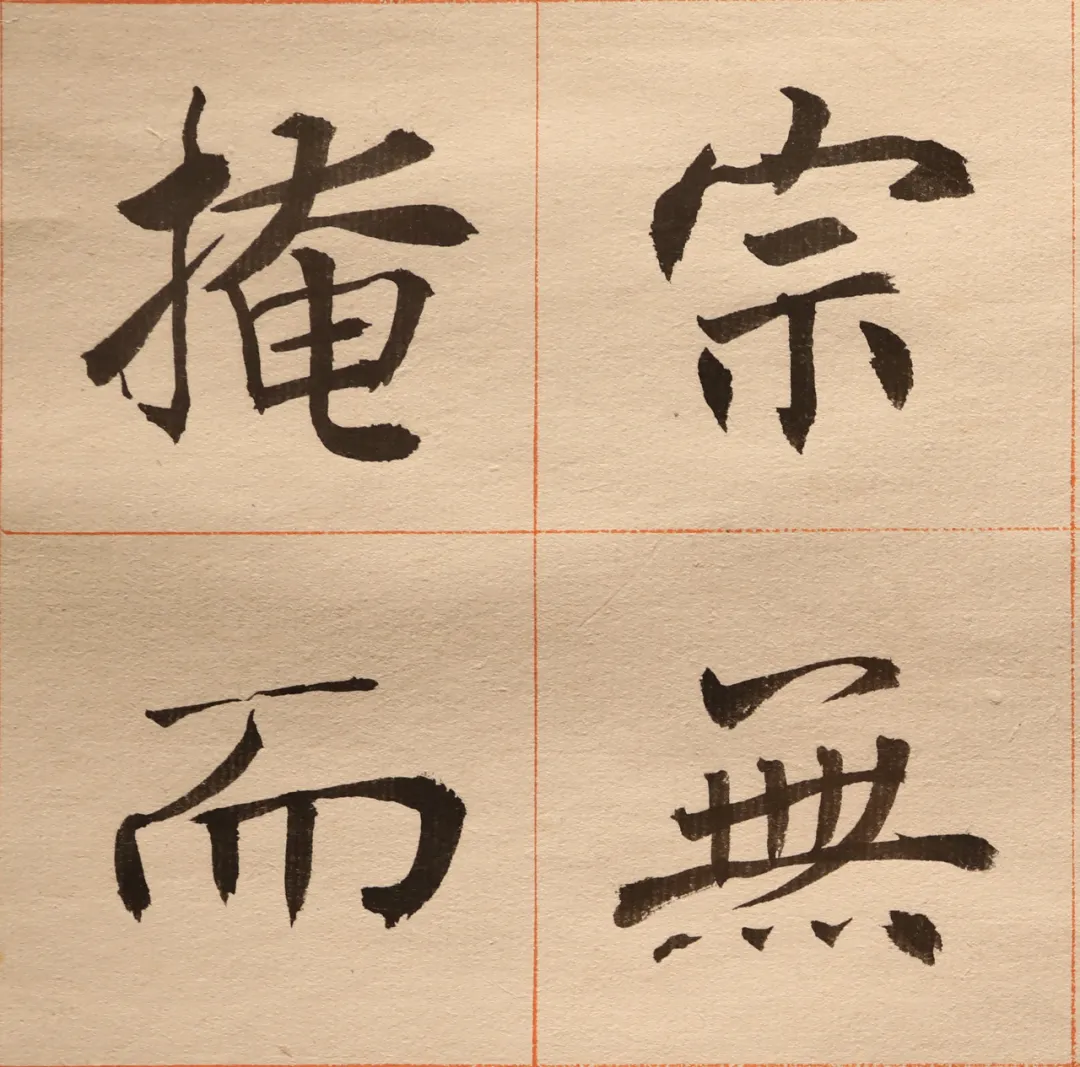 宗無
掩而